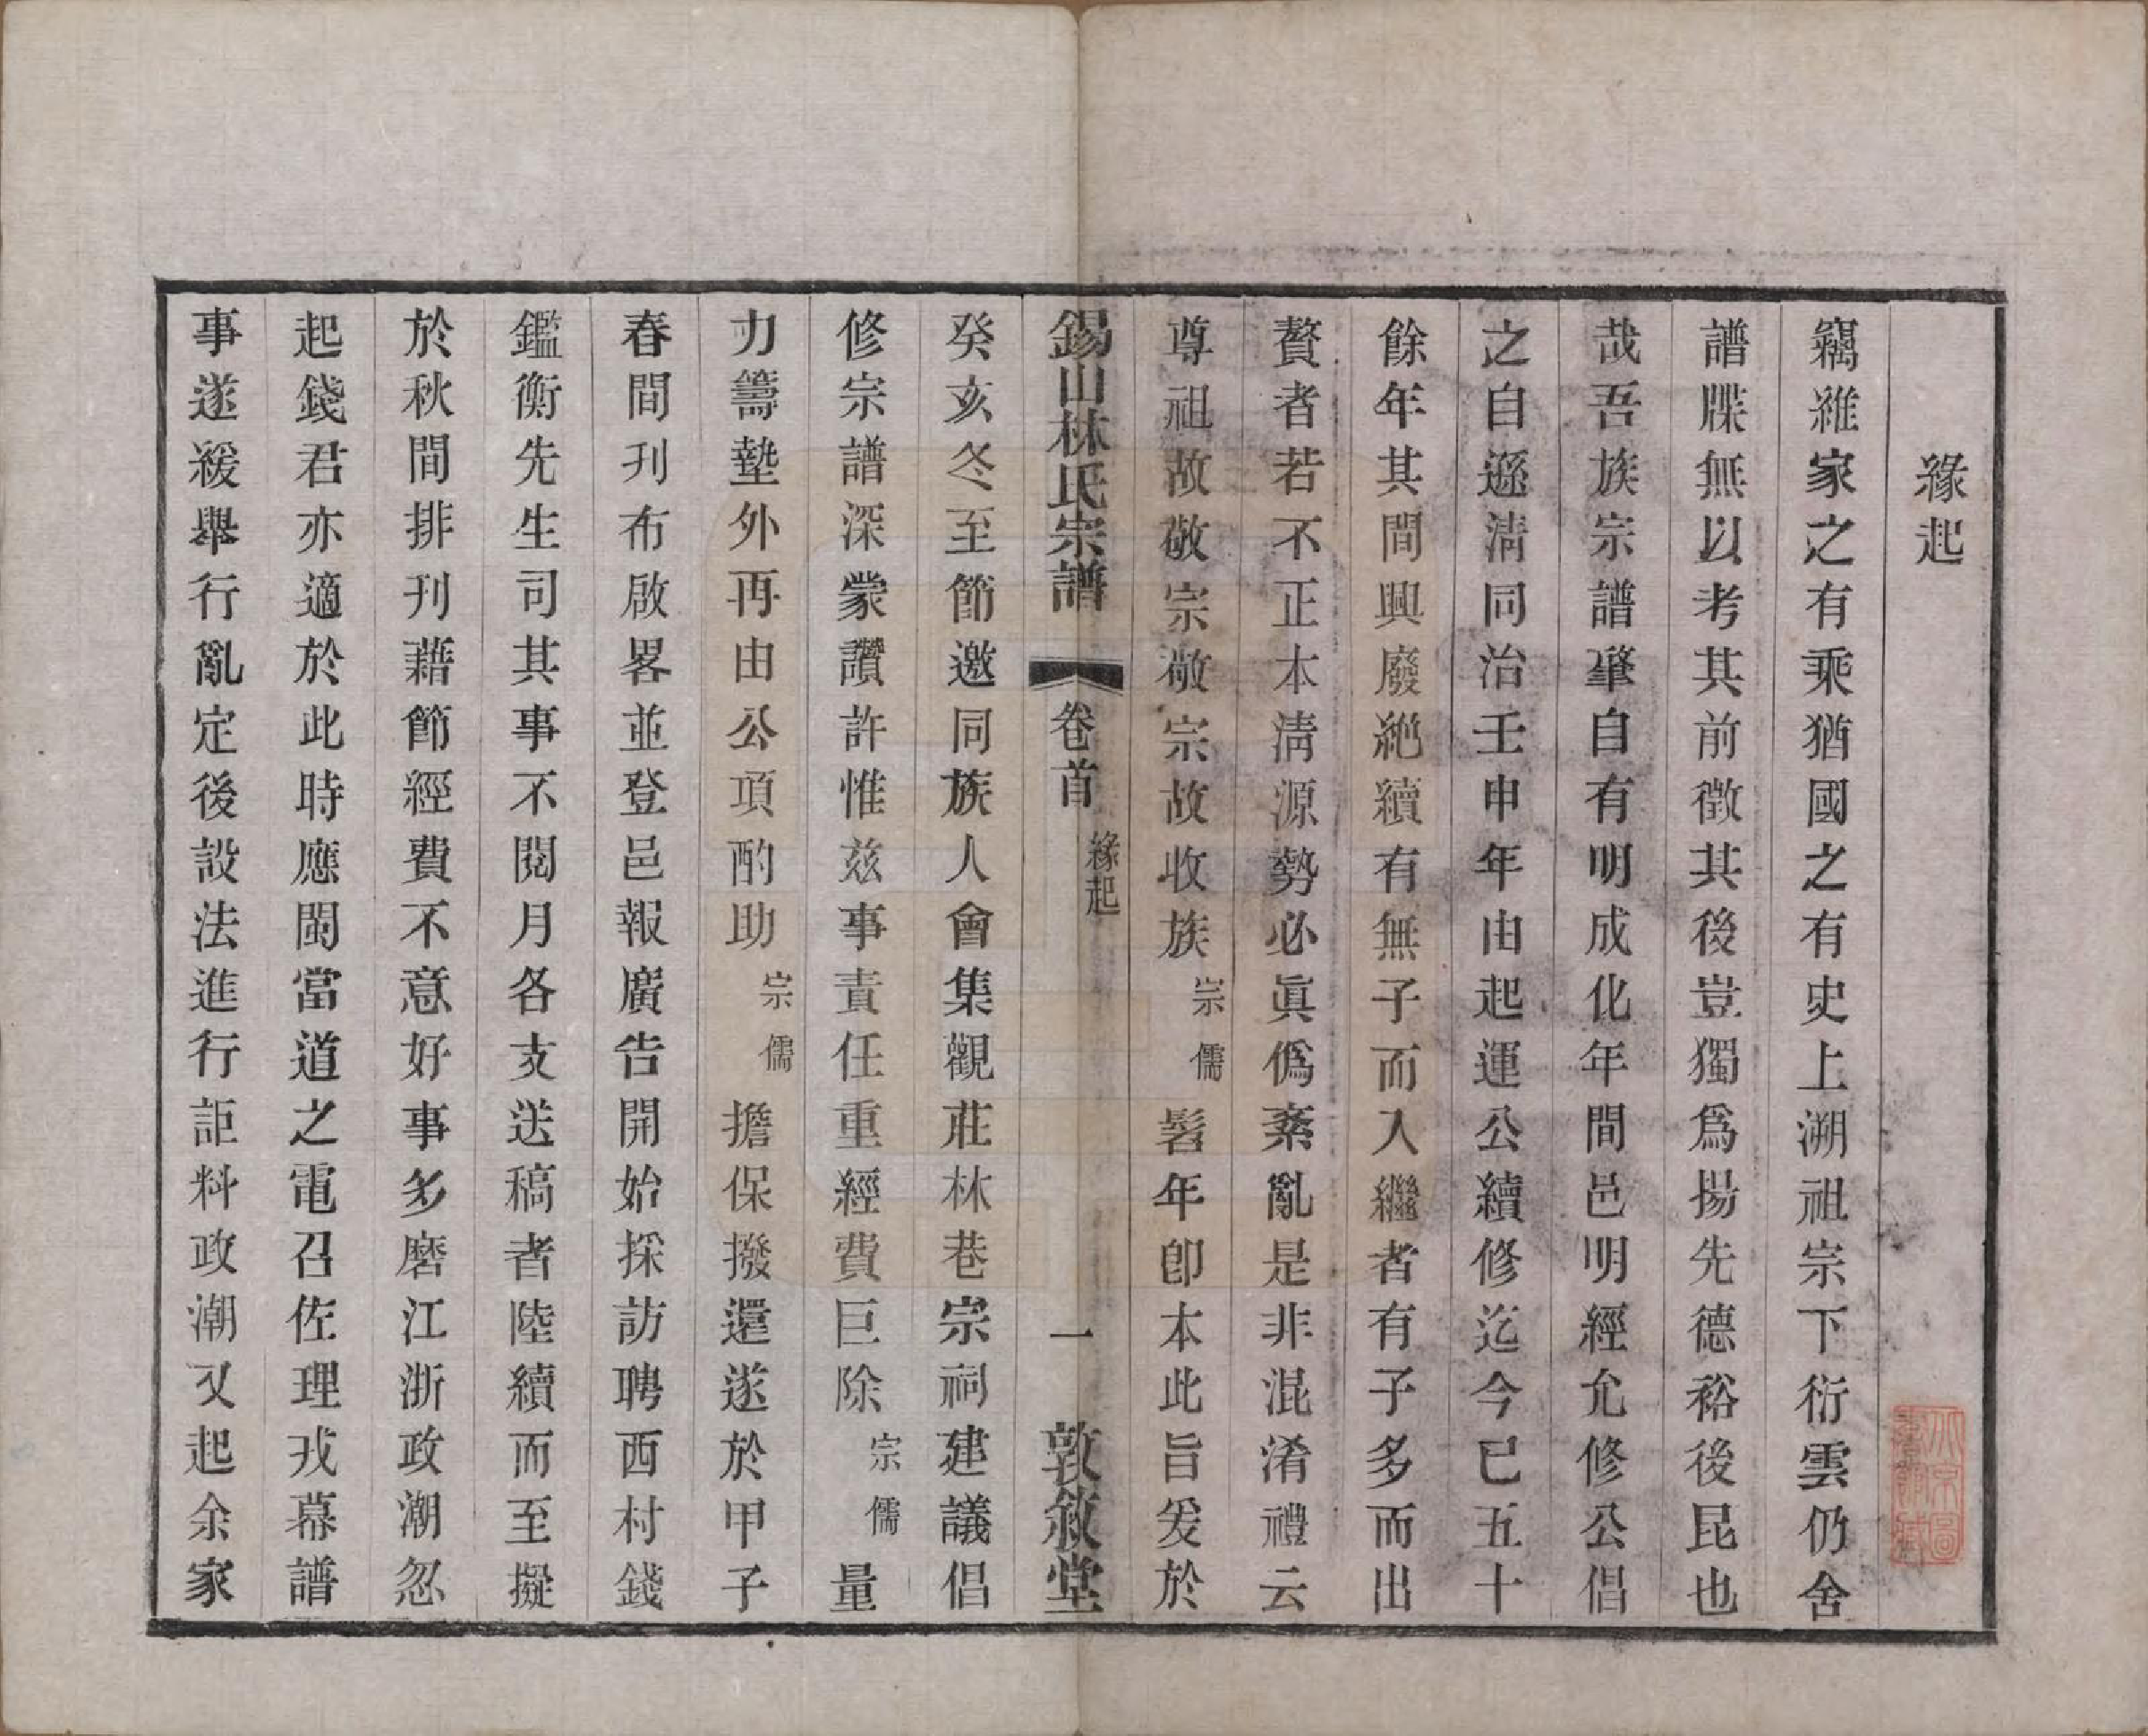 緣起
竊維家之有乘猶國之有史上溯祖宗下衍雲仍舍
譜牒無以考其前徵其後豈獨爲揚先德裕後昆也
哉吾族宗譜肇自有明成化年間邑明經允修公倡
之自遜淸同治壬申年由起運公續修迄今已五十
餘年其間興廢絶續有無子而入繼者有子多而出
贅者若不正本淸源勢必眞僞紊亂是非混淆禮云
尊祖故敬宗敬宗故收族宗儒髫年卽本此旨爰於
錫山林氏宗譜 卷首 緣起 一 敦敘堂
癸亥冬至節邀同族人會集觀莊林巷宗祠建議倡
修宗譜深蒙讚許惟兹事責任重經費巨除宗儒量
力籌墊外再由公項酌助宗儒擔保撥還遂於甲子
春間刊布啟畧並登邑報廣告開始採訪聘西村錢
鑑衡先生司其事不閱月各支送稿者陸續而至擬
於秋間排刊藉節經費不意好事多磨江浙政潮忽
起錢君亦適於此時應閩當道之電召佐理戎幕譜
事遂緩舉行亂定後設法進行詎料政潮又起余家